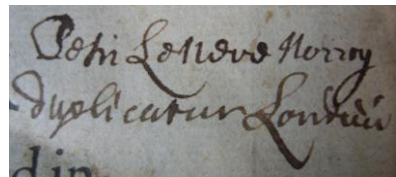 Petri Le Neve Norroy
duplicatur Londini
din